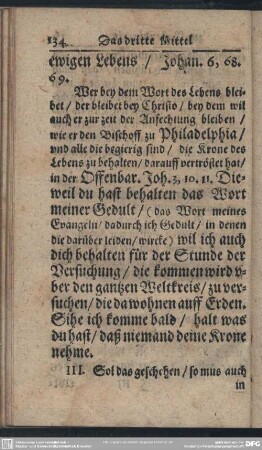 134. Das dritte Mittel
ewigen Lebens / Johan. 6, 68.
69.
Wer bey dem Wort des Lebens blei-
bet / der bleibet bey Christo / bey dem wil
auch er zur zeit der Anfechtung bleiben /
wie er den Bischoff zu Philadelphia /
und alle die begierig sind / die Krone des
Lebens zu behalten / darauff vertröstet hat /
in der Offenbar. Joh. 3, 10. 11. Die-
weil du hast behalten das Wort
meiner Gedult / (das Wort meines
Evangeln / dadurch ich Gedult / in denen
die darüber leiden / wircke) wil ich auch
dich behalten für der Stunde der
Versuchung / die kommen wird v-
ber den gantzen Weltkreis / zu ver-
suchen / die da wohnen auff Erden.
Sihe ich komme bald / halt was
du hast / daß niemand deine Krone
nehme.
III. Sol das geschehen / so mus auch
in